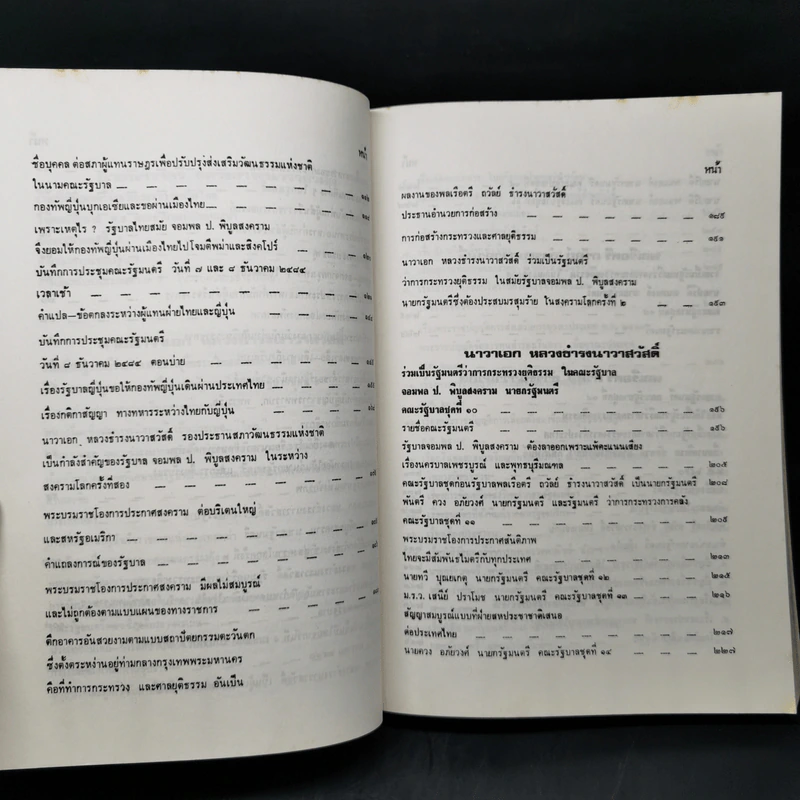 หน้า
ชื่อบุคคล ต่อสภาผู้แทนราษฎรเพื่อปรับปรุงส่งเสริมวัฒนธรรมแห่งชาติ
ในนามคณะรัฐบาล
กองทัพญี่ปุ่นบุกเอเซียและขอผ่านเมืองไทย
เพราะเหตุไร ? รัฐบาลไทยสมัย จอมพล ป. พิบูลสงคราม
จึงยอมให้กองทัพญี่ปุ่นผ่านเมืองไทยไปโจมตีพม่าและสิงคโปร์
บันทึกการประชุมคณะรัฐมนตรี วันที่ ๗ และ ๘ ธันวาคม ๒๔๘๔
เวลาเช้า
คำแปล—ข้อตกลงระหว่างผู้แทนฝ่ายไทยและญี่ปุ่น
บันทึกการประชุมคณะรัฐมนตรี
วันที่ ๘ ธันวาคม ๒๔๘๔ ตอนบ่าย
เรื่องรัฐบาลญี่ปุ่นขอให้กองทัพญี่ปุ่นเดินผ่านประเทศไทย
เรื่องกติกาสัญญา ทางทหารระหว่างไทยกับญี่ปุ่น
นาวาเอก หลวงธำรงนาวาสวัสดิ์ รองประธานสภาวัฒนธรรมแห่งชาติ
เป็นกำลังสำคัญของรัฐบาล จอมพล ป. พิบูลสงคราม ในระหว่าง
สงครามโลกครั้งที่สอง
พระบรมราชโองการประกาศสงคราม ต่อบริเตนใหญ่
และสหรัฐอเมริกา
คำแถลงการณ์ของรัฐบาล
พระบรมราชโองการประกาศสงคราม มีผลไม่สมบูรณ์
และไม่ถูกต้องตามแบบแผนของทางราชการ
ตึกอาคารอันสวยงามตามแบบสถาปัตยกรรมตะวันตก
ซึ่งตั้งตระหง่านอยู่ท่ามกลางกรุงเทพพระมหานคร
คือที่ทำการกระทรวง และศาลยุติธรรม อันเป็น
หน้า
ผลงานของพลเรือตรี ถวัลย์ ธำรงนาวาสวัสดิ์
ประธานอำนวยการก่อสร้าง ๑๘๙
การก่อสร้างกระทรวงและศาลยุติธรรม ๑๙๑
นาวาเอก หลวงธำรงนาวาสวัสดิ์ ร่วมเป็นรัฐมนตรี
ว่าการกระทรวงยุติธรรม ในสมัยรัฐบาลจอมพล ป. พิบูลสงคราม
นายกรัฐมนตรีซึ่งต้องประสบมรสุมร้าย ในสงครามโลกครั้งที่ ๒ ๑๙๓
นาวาเอก หลวงธำรงนาวาสวัสดิ์
ร่วมเป็นรัฐมนตรีว่าการกระทรวงยุติธรรม ในคณะรัฐบาล
จอมพล ป. พิบูลสงคราม นายกรัฐมนตรี
คณะรัฐบาลชุดที่ ๑๐ ๑๙๖
รายชื่อคณะรัฐมนตรี ๑๙๖
รัฐบาลจอมพล ป. พิบูลสงคราม ต้องลาออกเพราะแพ้คะแนนเสียง
เรื่องนครบาลเพชรบูรณ์ และพุทธบุรีมณฑล ๒๐๕
คณะรัฐบาลชุดก่อนรัฐบาลพลเรือตรี ถวัลย์ ธำรงนาวาสวัสดิ์ เป็นนายกรัฐมนตรี ๒๐๘
พันตรี ควง อภัยวงศ์ นายกรัฐมนตรี และรัฐมนตรี ว่าการกระทรวงการคลัง
คณะรัฐบาลชุดที่ ๑๑ ๒๐๙
พระบรมราชโองการประกาศสันติภาพ
ไทยจะมีสัมพันธไมตรีกับทุกประเทศ ๒๑๓
นายทวี บุณยเกตุ นายกรัฐมนตรี คณะรัฐบาลชุดที่ ๑๒ ๒๑๕
ม.ร.ว. เสนีย์ ปราโมช นายกรัฐมนตรี คณะรัฐบาลชุดที่ ๑๓ ๒๑๖
สัญญาสมบูรณ์แบบที่ฝ่ายสหประชาชาติเสนอ
ต่อประเทศไทย ๒๑๗
นายควง อภัยวงศ์ นายกรัฐมนตรี คณะรัฐบาลชุดที่ ๑๔ ๒๒๗